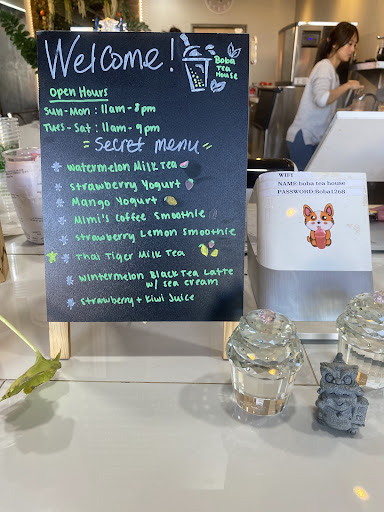 Welcome!
Boba
Tea
House
Open Hours
Sun-Mon : 11am - 8pm
Tues - Sat : 11am - 9pm
= Secret menu =
* Watermelon Milk Tea
* Strawberry Yogurt
* Mango Yogurt
* Mimi's Coffee Smoothie
* Strawberry Lemon Smoothie
★ Thai Tiger Milk Tea
* Wintermelon Black Tea Latte
w/ Sea Cream
* Strawberry + Kiwi Juice
WIFI
NAME:boba tea house
PASSWORD:Boba1268